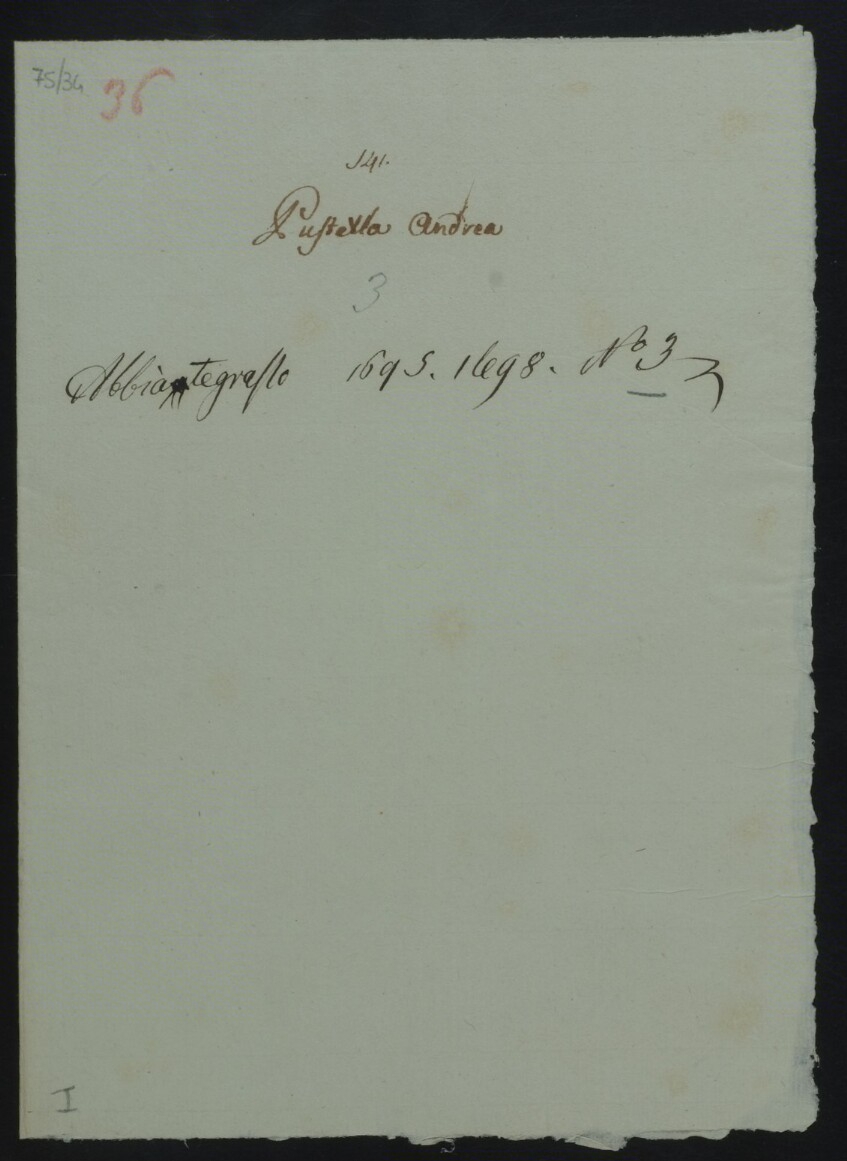 75/34
36
141.
Pustella Andrea
3
Abbiategrasso 1695. 1698. No 3
I